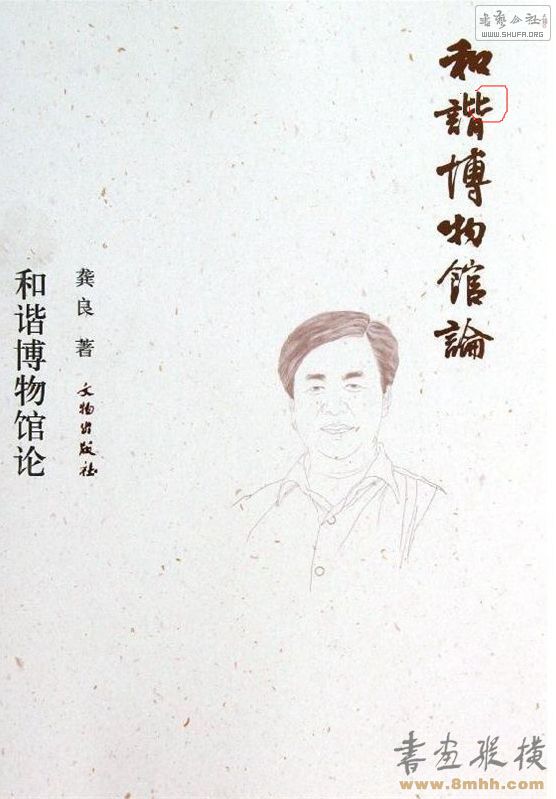 書藝公社
WWW.SHUFA.ORG
和諧博物館論
龚良 著
文物出版社
和谐博物馆论
書画縱横
www.8mhh.com